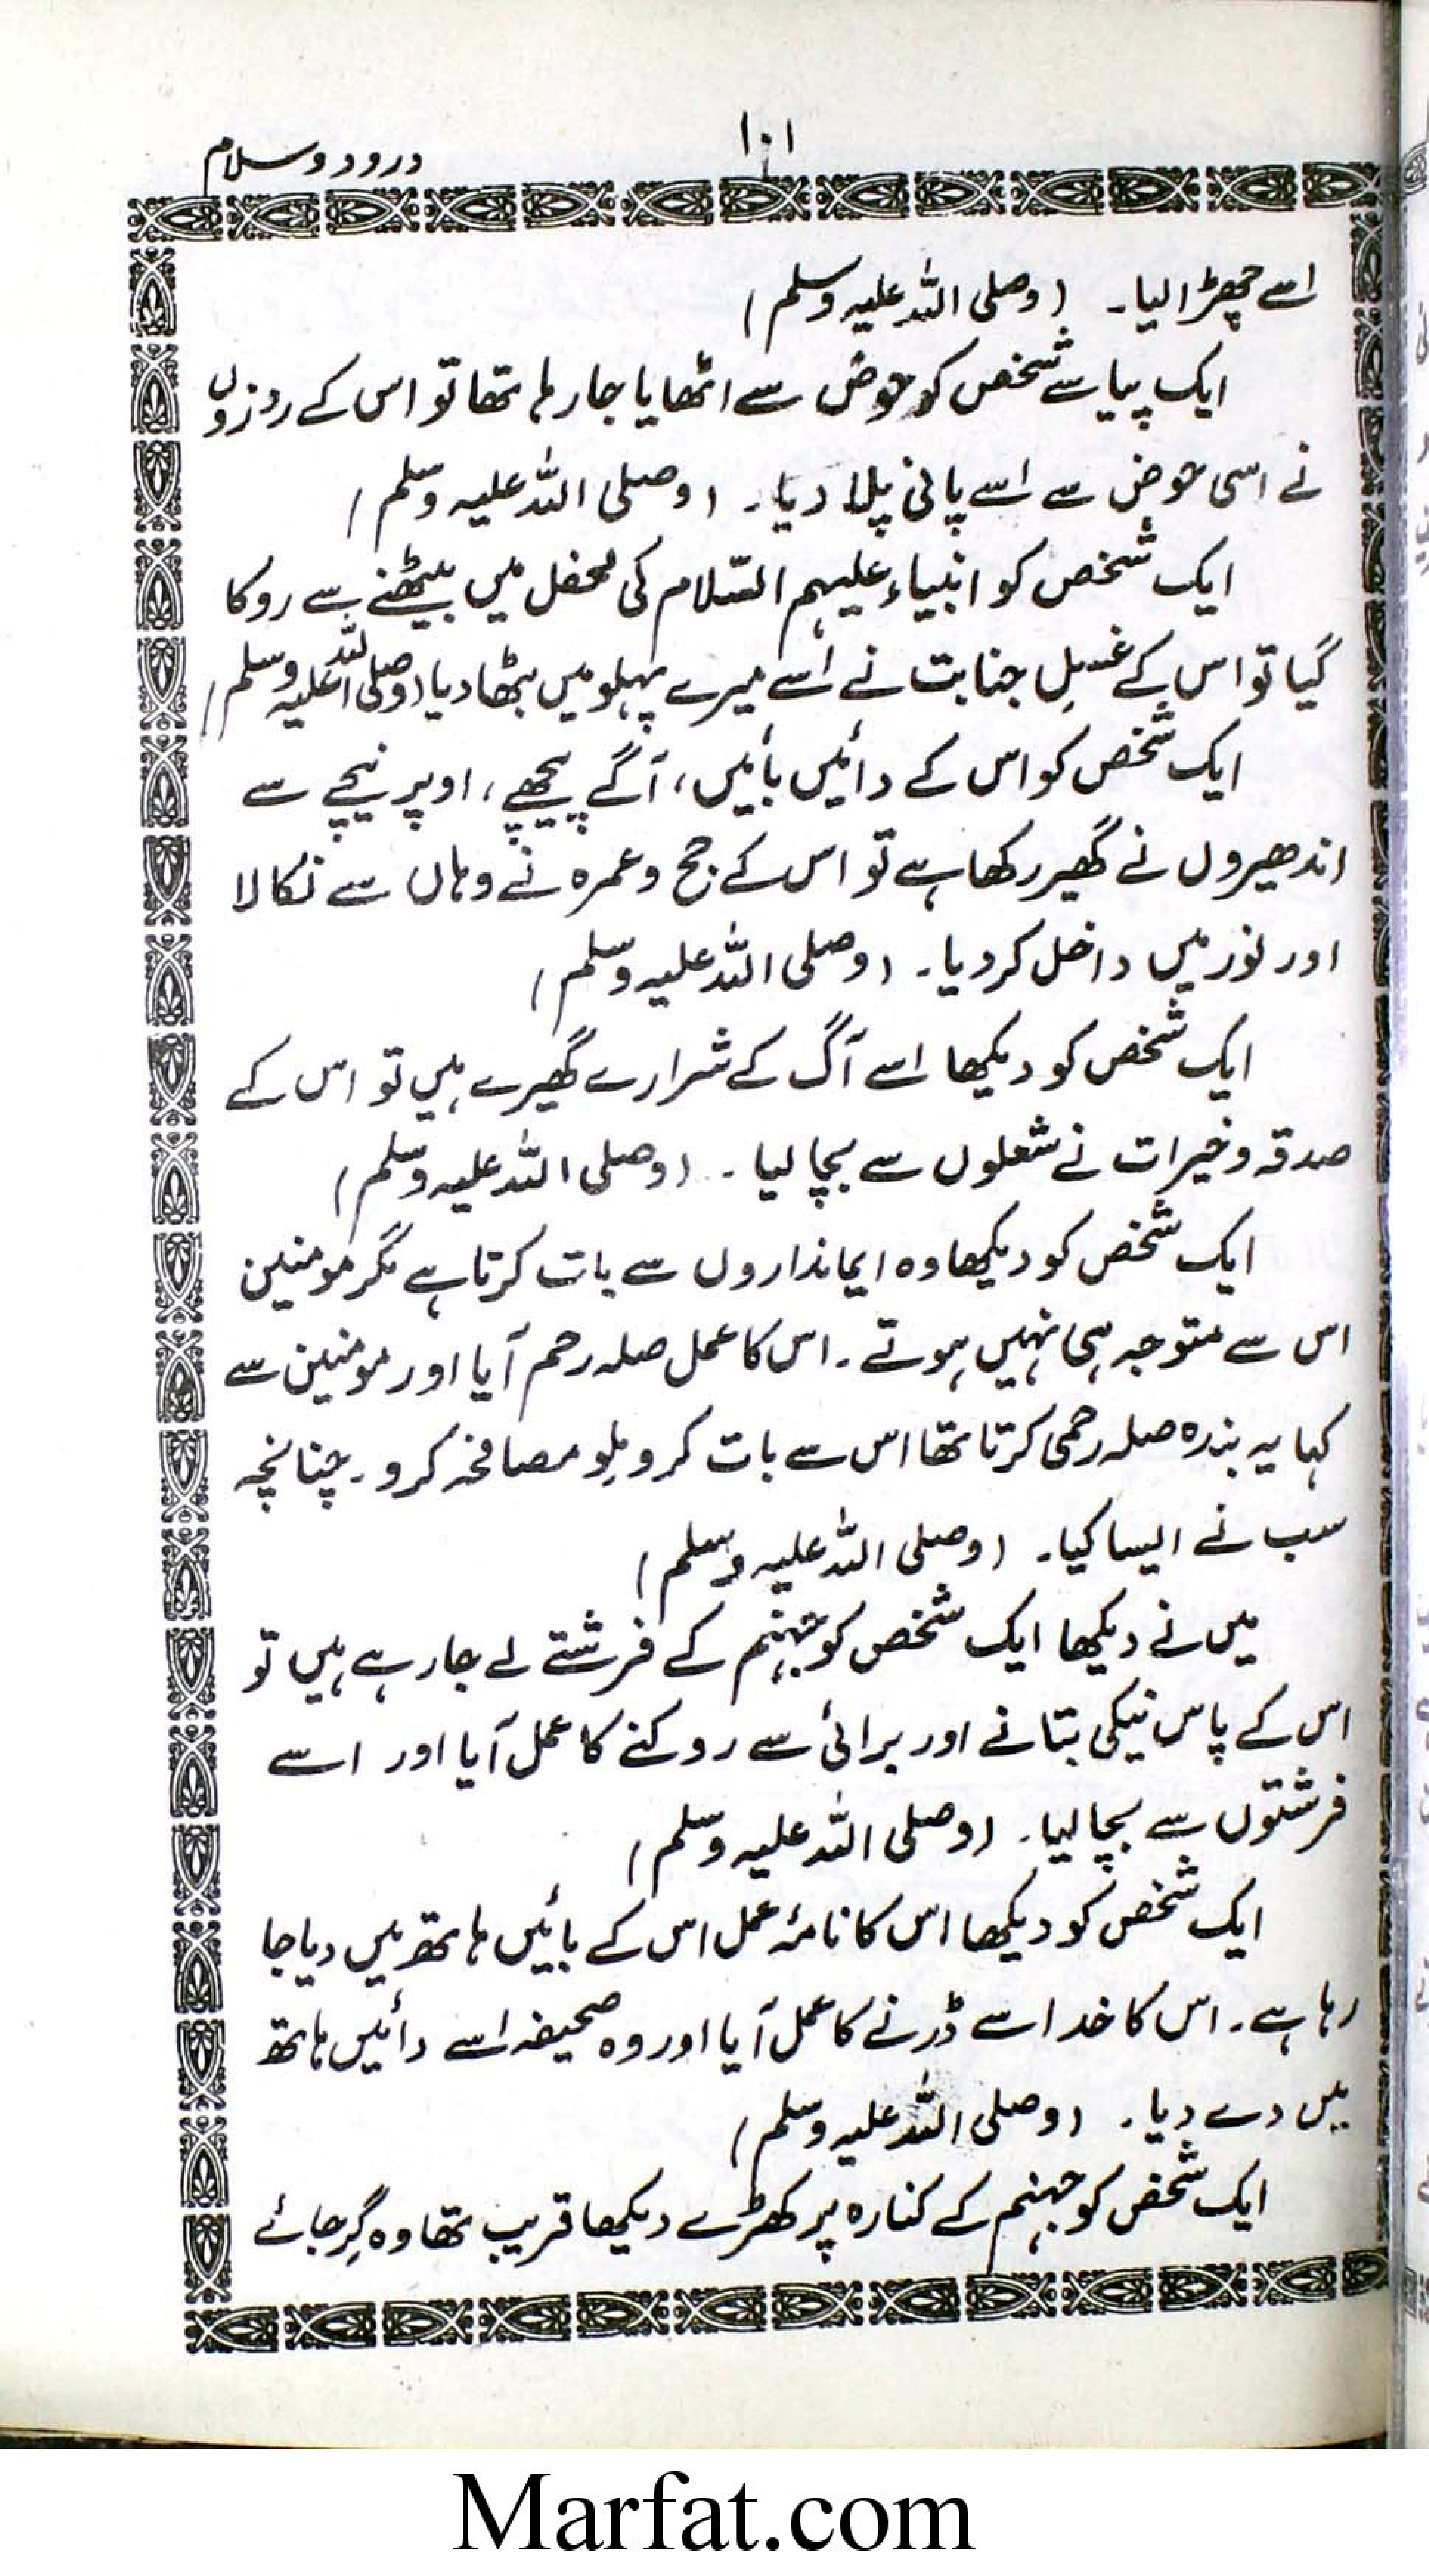 ۱۰۱
درود و سلام
اسے چھڑا لیا۔ (وصلی اللہ علیہ وسلم)
ایک پیاسے شخص کو حوض سے اٹھایا جا رہا تھا تو اس کے روزوں
نے اسی حوض سے اسے پانی پلا دیا۔ (وصلی اللہ علیہ وسلم)
ایک شخص کو انبیاء علیہم السّلام کی محفل میں بیٹھنے سے روکا
گیا تو اس کے غسلِ جنابت نے اُسے میرے پہلو میں بٹھا دیا (وصلی اللہ علیہ وسلم)
ایک شخص کو اس کے دائیں بائیں، آگے پیچھے، اوپر نیچے سے
اندھیروں نے گھیر رکھا ہے تو اس کے حج و عمرہ نے وہاں سے نکالا
اور نور میں داخل کر دیا۔ (وصلی اللہ علیہ وسلم)
ایک شخص کو دیکھا اسے آگ کے شرارے گھیرے ہیں تو اس کے
صدقہ و خیرات نے شعلوں سے بچا لیا۔ (وصلی اللہ علیہ وسلم)
ایک شخص کو دیکھا وہ ایمانداروں سے بات کرتا ہے مگر مومنین
اس سے متوجہ ہی نہیں ہوتے۔ اس کا عمل صلہ رحم آیا اور مومنین سے
کہا یہ بندہ صلہ رحمی کرتا تھا اس سے بات کرو ملو مصافحہ کرو۔ چنانچہ
سب نے ایسا کیا۔ (وصلی اللہ علیہ وسلم)
میں نے دیکھا ایک شخص کو جہنم کے فرشتے لے جا رہے ہیں تو
اس کے پاس نیکی بتانے اور برائی سے روکنے کا عمل آیا اور اسے
فرشتوں سے بچا لیا۔ (وصلی اللہ علیہ وسلم)
ایک شخص کو دیکھا اس کا نامۂ عمل اس کے بائیں ہاتھ میں دیا جا
رہا ہے۔ اس کا خدا سے ڈرنے کا عمل آیا اور وہ صحیفہ اسے دائیں ہاتھ
میں دے دیا۔ (وصلی اللہ علیہ وسلم)
ایک شخص کو جہنم کے کنارہ پر کھڑے دیکھا قریب تھا وہ گِر جائے
Marfat.com